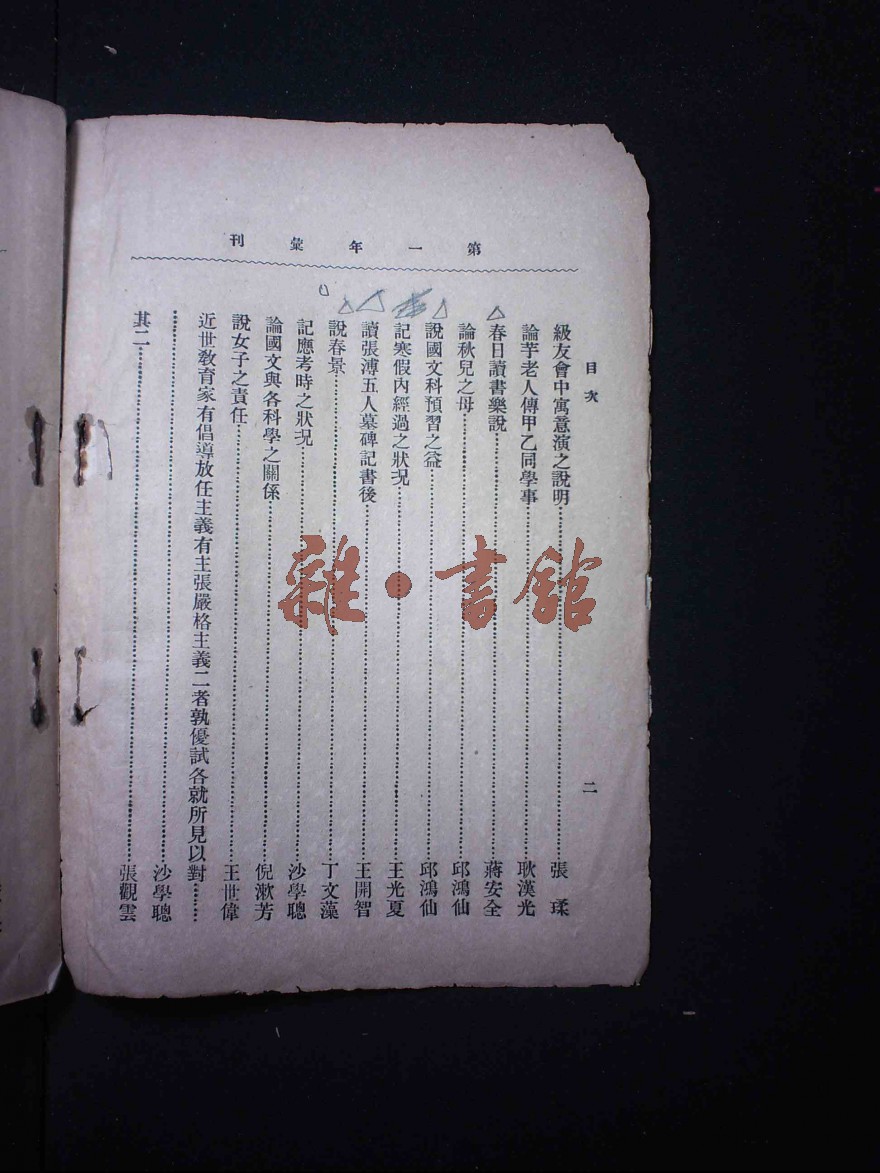 第一年彙刊
目次
二
級友會中寓意演之說明……張瑈
論芋老人傳甲乙同學事……耿漢光
春日讀書樂說……蔣安全
論秋兒之母……邱鴻仙
說國文科預習之益……邱鴻仙
記寒假內經過之狀況……王光夏
讀張溥五人墓碑記書後……王開智
說春景……丁文藻
記應考時之狀況……沙學聰
論國文與各科學之關係……倪漱芳
說女子之責任……王世偉
近世敎育家有倡導放任主義有主張嚴格主義二者孰優試各就所見以對……
……沙學聰
其二……張觀雲
雜·書館